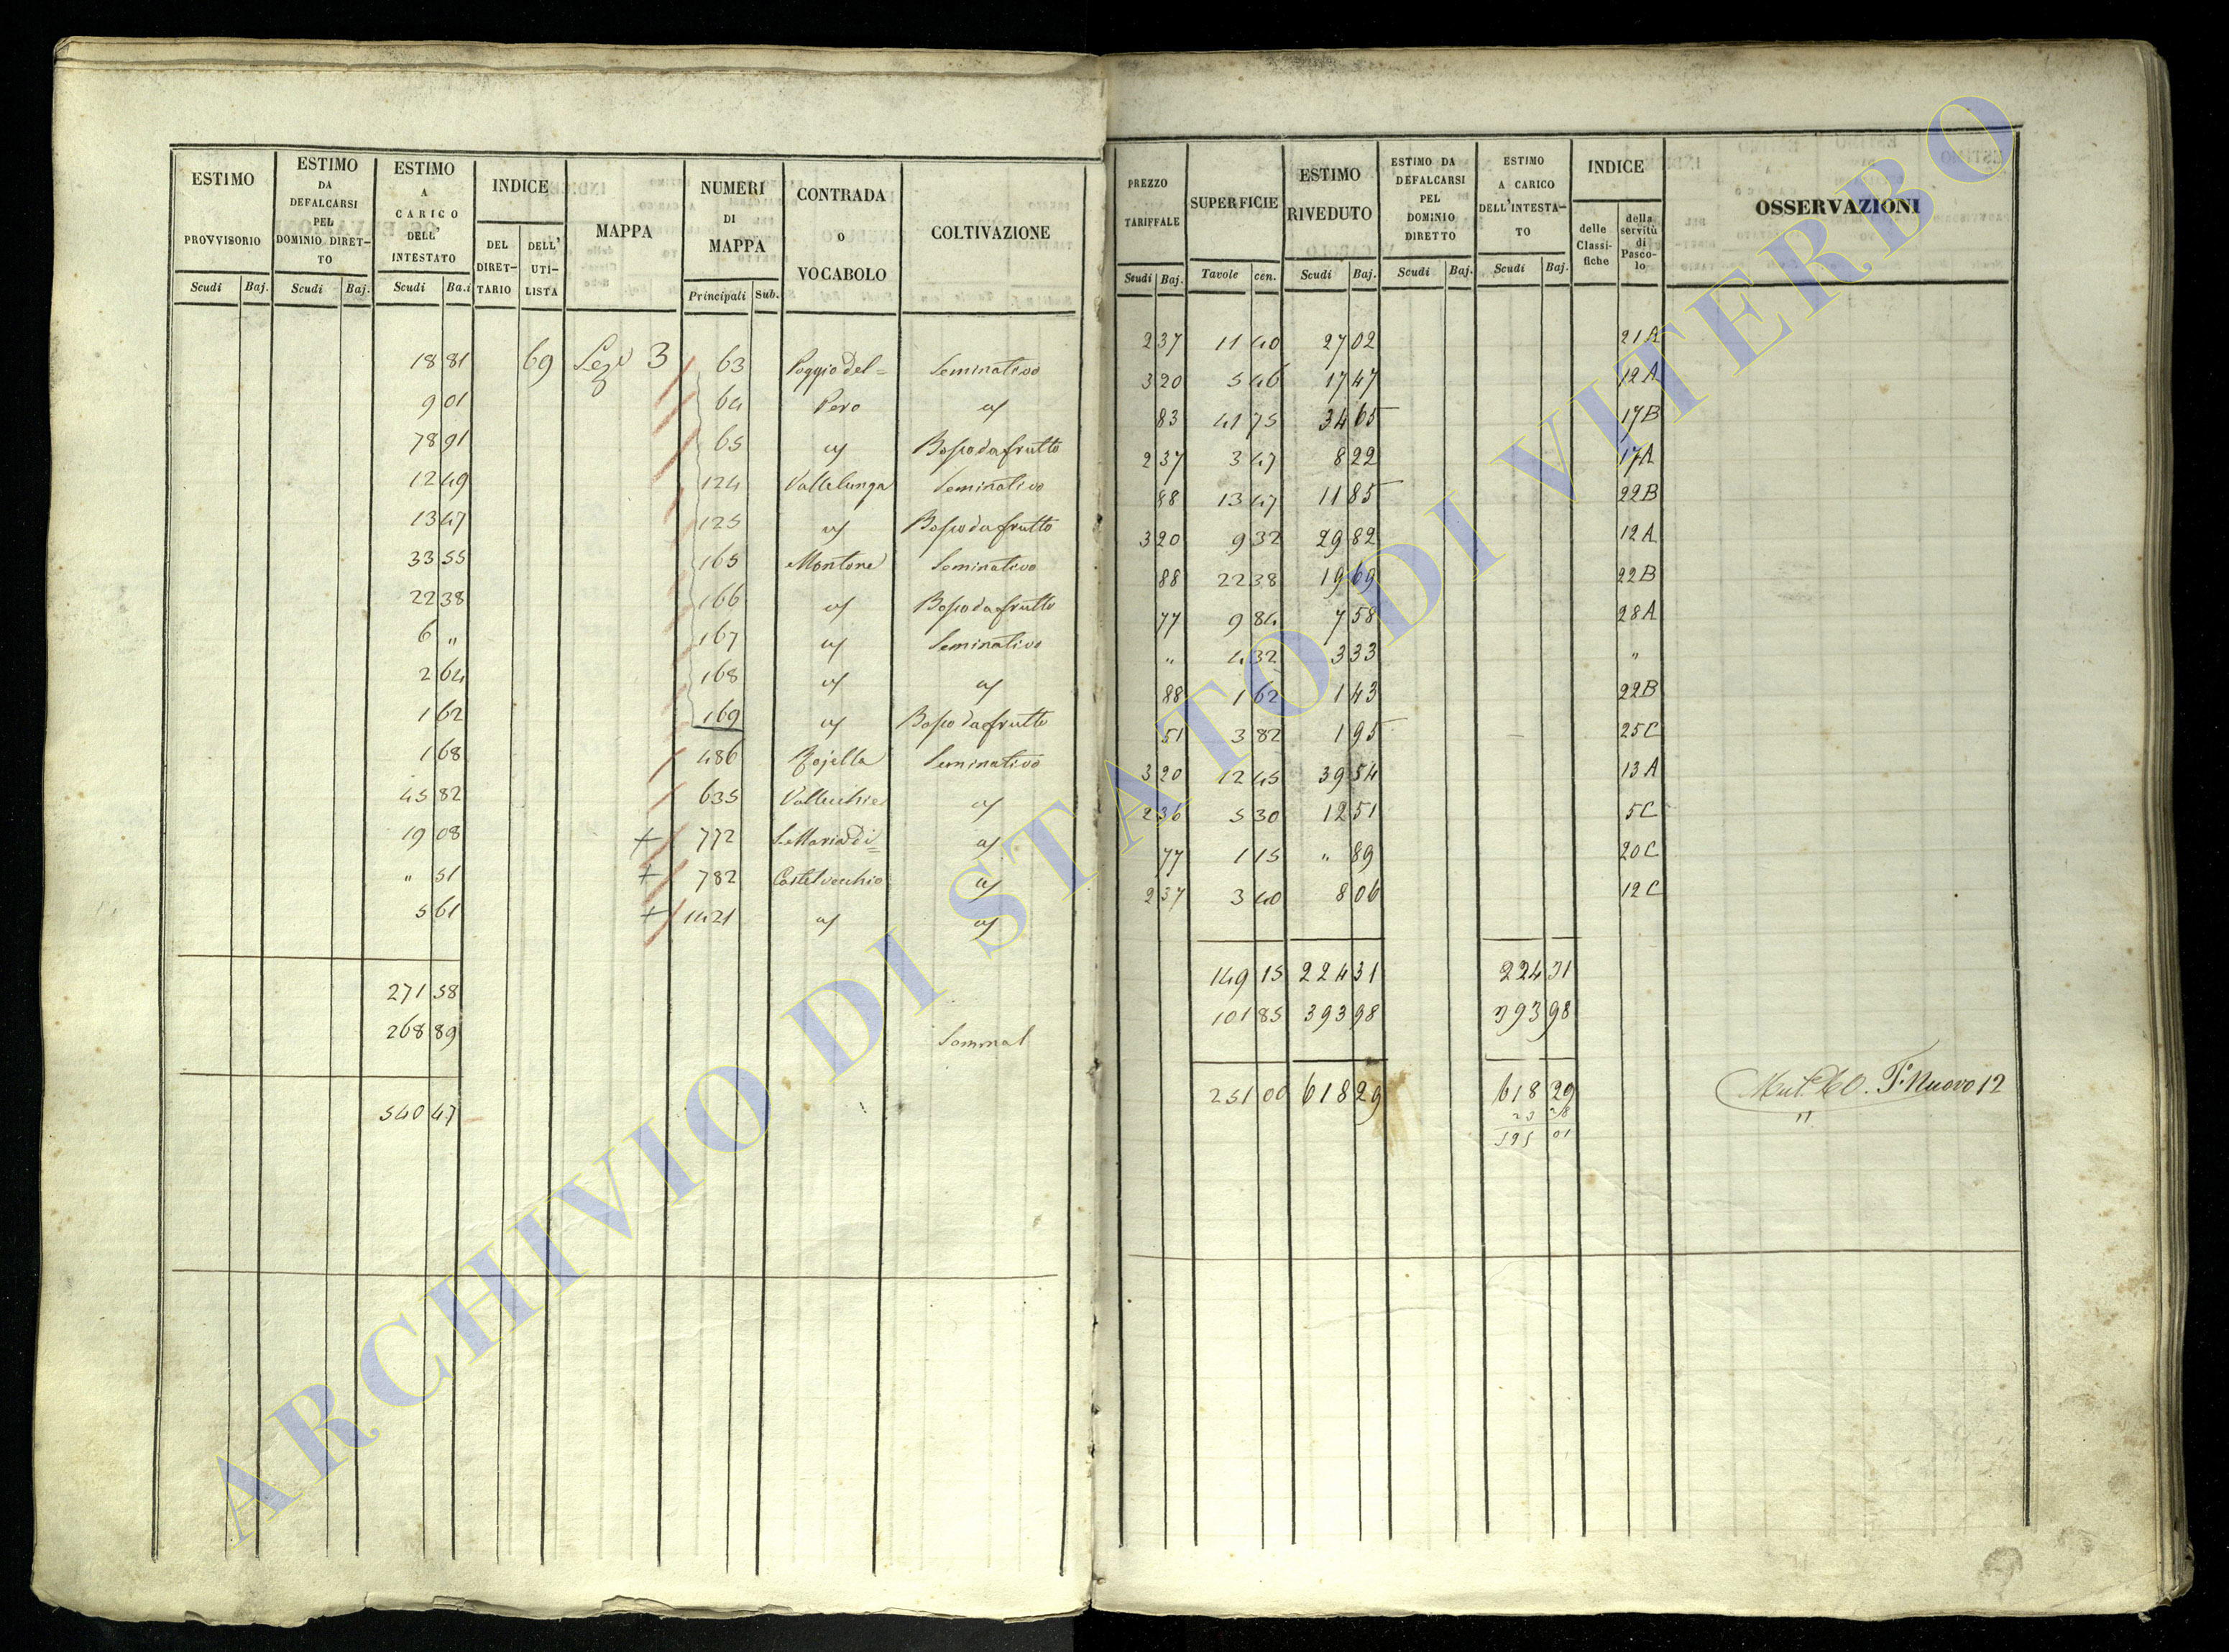 ESTIMO PROVVISORIO | ESTIMO DA DEFALCARSI PEL DOMINIO DIRET-TO | ESTIMO A CARICO DELL' INTESTATO | INDICE | MAPPA | NUMERI DI MAPPA | CONTRADA O VOCABOLO | COLTIVAZIONE | PREZZO TARIFFALE | SUPERFICIE | ESTIMO RIVEDUTO | ESTIMO DA DEFALCARSI PEL DOMINIO DIRETTO | ESTIMO A CARICO DELL'INTESTA-TO | INDICE | OSSERVAZIONI
DEL DIRET-TARIO | DELL' UTI-LISTA | delle Classi-fiche | della servitù di Pasco-lo
Scudi | Baj. | Scudi | Baj. | Scudi | Ba.i | Principali | Sub. | Scudi | Baj. | Tavole | cen. | Scudi | Baj. | Scudi | Baj. | Scudi | Baj.
18 81 | 69 | Sez. 3 | 63 | Poggio del= | Seminativo | 2 37 | 11 40 | 27 02 | 21A
9 01 | 64 | Pero | a/ | 3 20 | 5 46 | 17 47 | 12A
78 91 | 65 | a/ | Bosco da frutto | 83 | 41 75 | 34 65 | 17B
12 49 | 124 | Vallelunga | Seminativo | 2 37 | 3 47 | 8 22 | 17A
13 47 | 125 | a/ | Bosco da frutto | 88 | 13 47 | 11 85 | 22B
33 55 | 165 | Montone | Seminativo | 3 20 | 9 32 | 29 82 | 12A
22 38 | 166 | a/ | Bosco da frutto | 88 | 22 38 | 19 69 | 22B
6 " | 167 | a/ | Seminativo | 77 | 9 84 | 7 58 | 28A
2 64 | 168 | a/ | a/ | " | 4 32 | 3 33 | "
1 62 | 169 | a/ | Bosco da frutto | 88 | 1 62 | 1 43 | 22B
1 68 | 486 | Rojella | Seminativo | 51 | 3 82 | 1 95 | 25C
45 82 | 635 | Vallecchie | a/ | 3 20 | 12 45 | 39 54 | 13A
19 08 | + | 772 | S. Maria di= | a/ | 2 36 | 5 30 | 12 51 | 5C
" 51 | + | 782 | Castelvecchio | a/ | 77 | 1 15 | " 89 | 20C
5 61 | + | 1421 | a/ | a/ | 2 37 | 3 40 | 8 06 | 12C
271 58 | 149 15 | 224 31 | 224 31
268 89 | 101 85 | 393 98 | 393 98
540 47 | 251 00 | 618 29 | 618 29 | F. Nuovo 12
595 01
ARCHIVIO DI STATO DI VITERBO